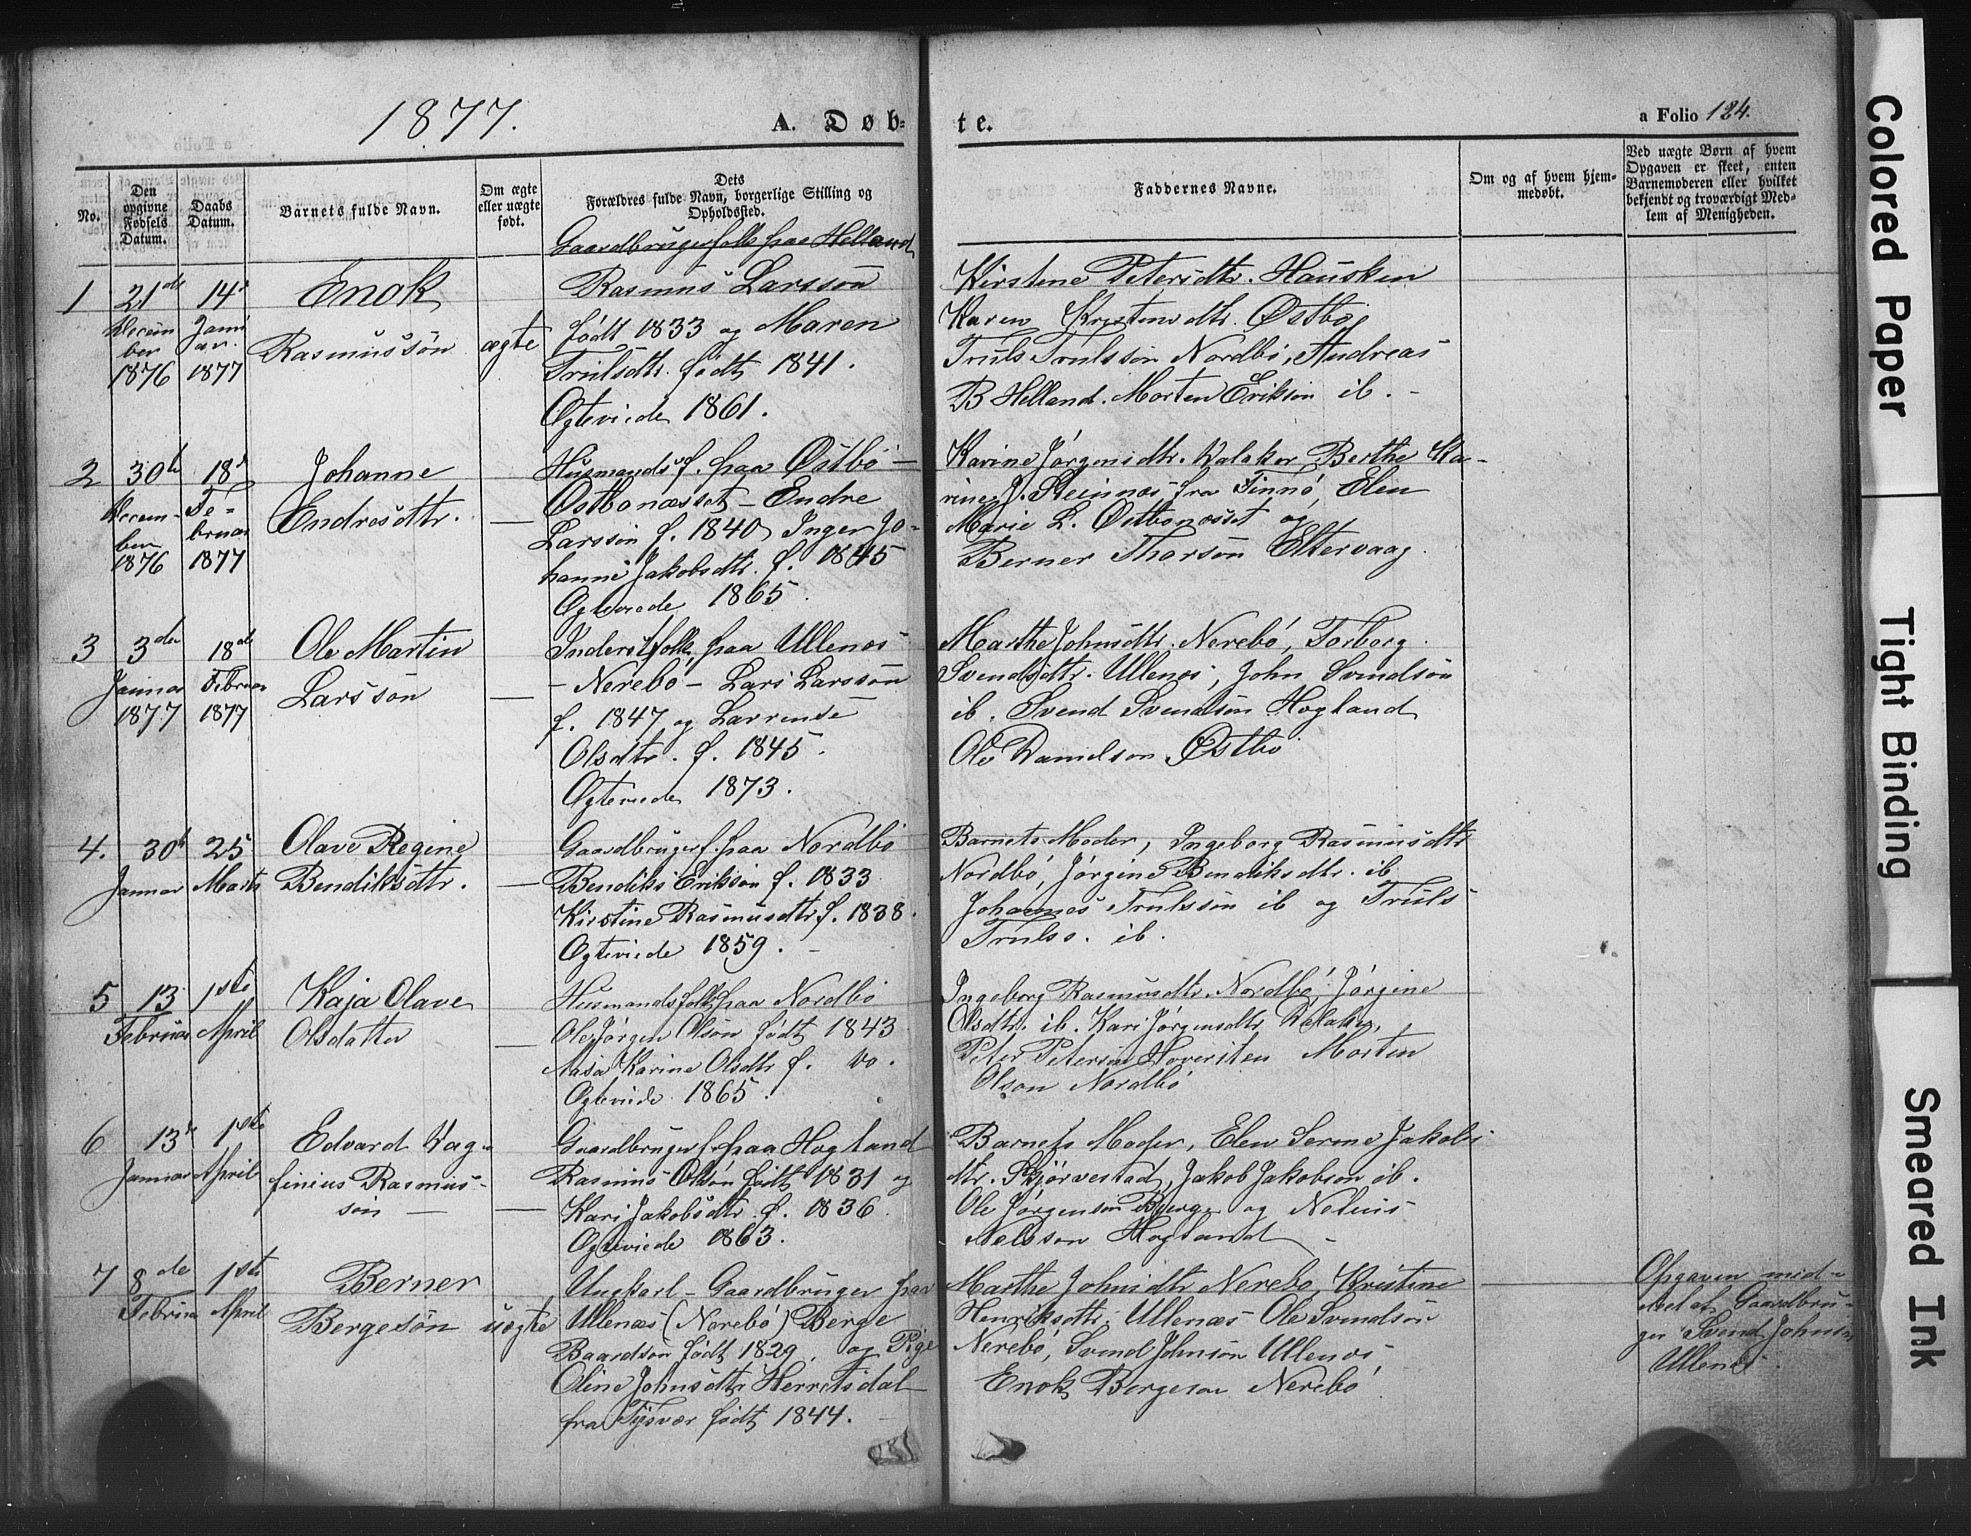 1877.
A. Døb-
te.
a Folio 124.
No.
Den opgivne Fødsels Datum.
Daabs Datum.
Barnets fulde Navn.
Om ægte eller uægte født.
Dets
Forældres fulde Navn, borgerlige Stilling og
Opholdssted.
Faddernes Navne.
Om og af hvem hjem-
medøbt.
Ved uægte Børn af hvem
Opgaven er skeet, enten
Barnemoderen eller hvilket
bekjendt og troværdigt Med-
lem af Menigheden.
1
21de
Decem
ber
1876
14d
Janu
ar.
1877
Enok
Rasmussön
ægte
Gaardbrugerfolk paa Helland
Rasmus Larssön
født 1833 og Maren
Trulsdtr. født 1841.
Ægteviede 1861.
Kirstene Petersdtr. Hausken
Karen Østbø
Truls Trulssön Nordbö, Andreas
B Helland. Morten Erikson ib. -
2
30te
Decem-
ber
1876
18d
Fe-
bruar
1877
Johanne
Endresdtr.
—
Husmandsf. paa Østbö -
Østbonæsset - Endre
Larssön f. 1840, Inger Jo-
hanne Jakobsdtr. f. 1845
Ægteviede 1865.
Karine Jørgensdtr. Valaker Berthe Ka-
rine J. Steinnes fra Finnö, Elen
Marie L. Østbonæsset og
Berner Thorsön Eltervaag.
3
3die
Januar
1877
18de
Februar
1877
Ole Martin
Larssön
—
Inderstfolk paa Ullenes
- Nerebö - Lars Larssön
f. 1847 og Larrense
Olsdtr. f. 1845.
Ægteviede 1873.
Marthe Johnsdtr. Nerebö, Torborg
Svendsdtr. Ullenes, John Svendsön
ib. Svend Svendsön Hogland
Ole Danielson Østbö
4.
30te
Januar
25
Marts
Olave Regine
Bendiksdtr.
—
Gaardbrugerf. paa Nordbö
Bendiks Eriksön f. 1833
Kirstine Rasmusdtr f. 1838.
Ægteviede 1859. -
Barnets Moder, Ingeborg Rasmusdtr
Nordbö, Jørgine Bendiksdtr. ib
Johannes Trulssön ib og Truls
Trulss. ib.
5
13
Februar
1ste
April
Kaja Olave
Olsdatter
—
Husmandsfolk paa Nordbö
Ole Jörgen Olsön født 1843
Aasa Karine Olsdtr f. do.
Ægteviede 1865.
Ingeborg Rasmusdtr. Nordbö, Jørgine
Olsdtr. ib. Kari Jørgensdtr. Valaker,
Peter Petersön Hoversten Morten
Olson Nordbö
6
13de
Januar
1ste
April
Edvard Vag-
finius Rasmus-
sön —
—
Gaardbrugerf. paa Hogland
Rasmus Olsön født 1831 og
Kari Jakobsdtr. f. 1836
Ægteviede 1863.
Barnets Moder, Elen Serine Jakobs
dtr. Skjørvestad, Jakob Jakobson ib.
Ole Jørgensön Bjerge og Nelius
Nelsson Hogland -
7
8de
Februar
1ste
April
Berner
Bergesön
uægte
Ungkarl - Gaardbruger paa
Ullenæs (Nerebö) Berge
Baardsön født 1829, og Pige
Oline Johnsdtr Herretsdal
fra Tysvær født 1844. -
Marthe Johnsdtr Nerebö, Kristine
Henriksdtr. Ullenæs Ole Svendsön
Nerebö, Svend Johnsön Ullenes
Enok Bergeson Nerebö
Opgaven med-
delt af Gaardbru-
ger Svend Johns
Ullenes.
Colored Paper
Tight Binding
Smeared Ink